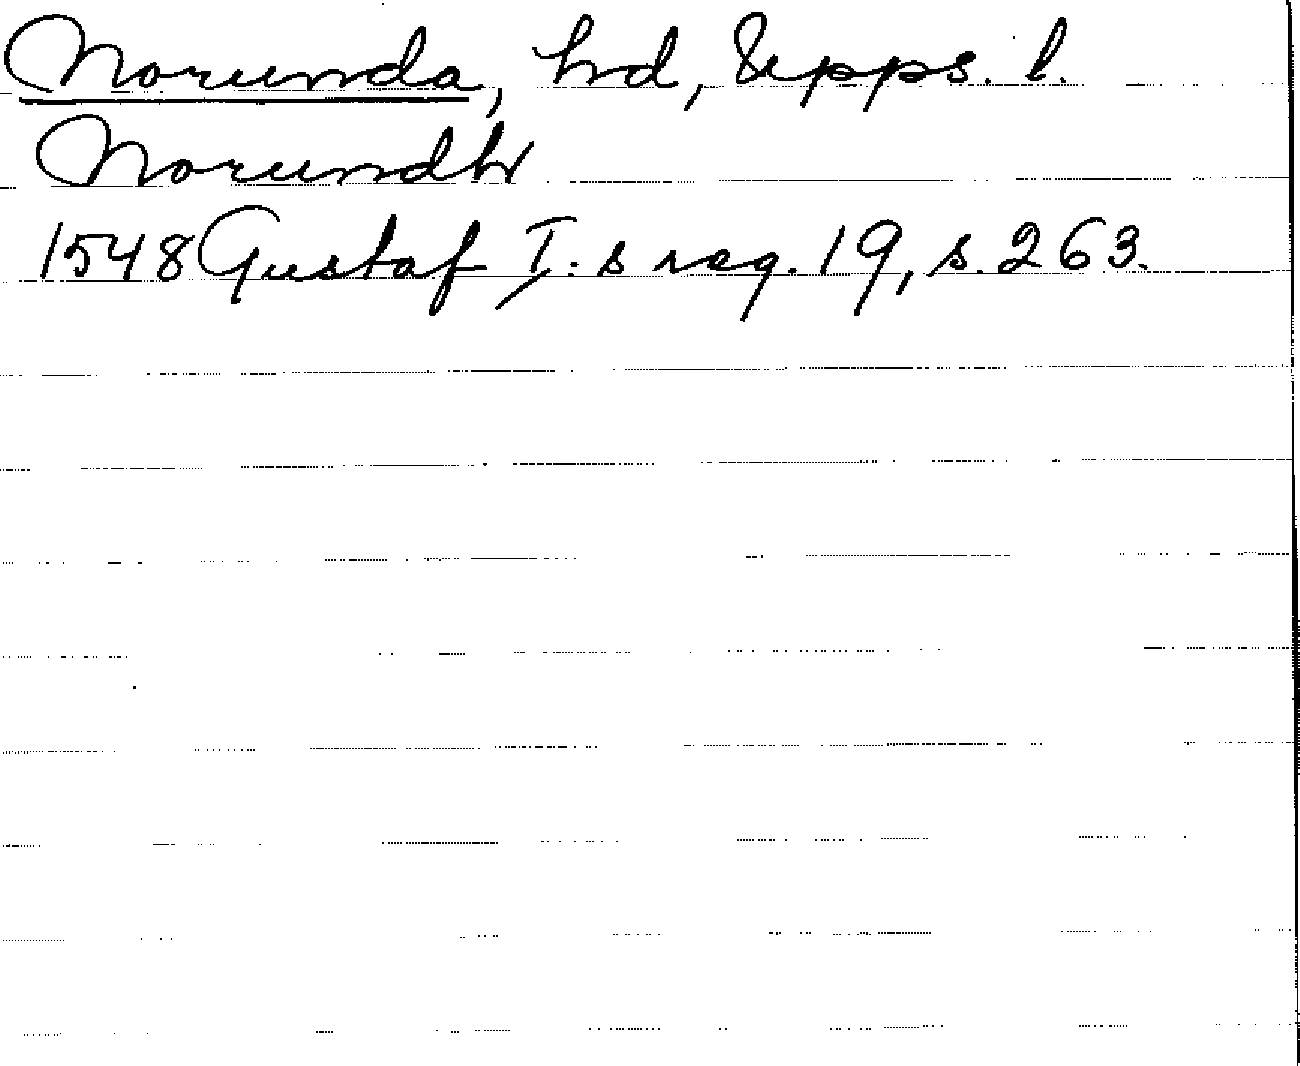 Norunda, hd, Upps. l.
Norundh
1548 Gustaf I:s reg. 19, s. 263.